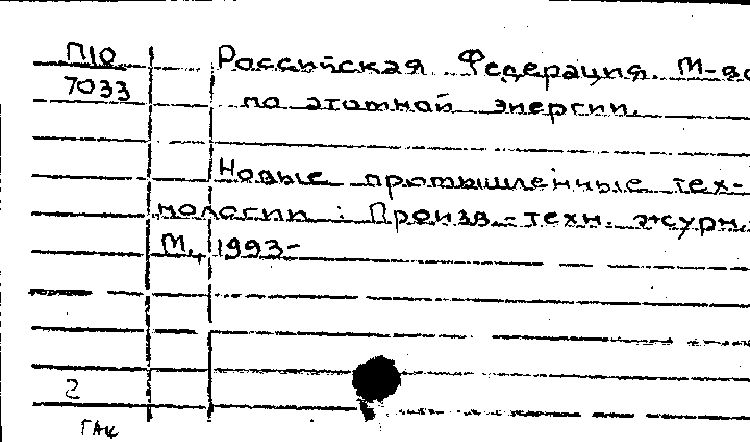 П10
7033
Российская Федерация. М-во
по атомной энергии.
Новые промышленные тех-
нологии : Произв.-техн. журн.
М., 1993-
2
ГАК